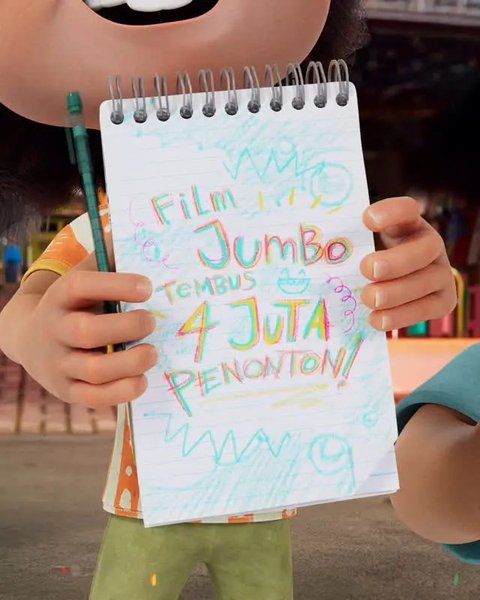 FiLm
JumBo
TEMBUS
4 JUTA
PENONTON!